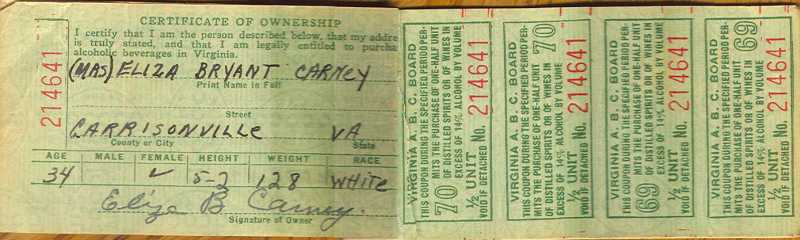 CERTIFICATE OF OWNERSHIP
I certify that I am the person described below, that my addre
is truly stated, and that I am legally entitled to purcha
alcoholic beverages in Virginia.
(MRS) ELIZA BRYANT CARNEY
Print Name in Full
Street
GARRISONVILLE VA
County or City State
AGE MALE FEMALE HEIGHT WEIGHT RACE
34 ✓ 5-2 128 WHITE
Eliza B Carney.
Signature of Owner
214641
VIRGINIA A. B. C. BOARD
THIS COUPON DURING THE SPECIFIED PERIOD PER-
MITS THE PURCHASE OF ONE-HALF UNIT
OF DISTILLED SPIRITS OR OF WINES IN
EXCESS OF 14% ALCOHOL BY VOLUME
70 ½ UNIT No. 214641
VOID IF DETACHED
VIRGINIA A. B. C. BOARD
THIS COUPON DURING THE SPECIFIED PERIOD PER-
MITS THE PURCHASE OF ONE-HALF UNIT
OF DISTILLED SPIRITS OR OF WINES IN
EXCESS OF 14% ALCOHOL BY VOLUME
70
½ UNIT No. 214641
VOID IF DETACHED
VIRGINIA A. B. C. BOARD
THIS COUPON DURING THE SPECIFIED PERIOD PER-
MITS THE PURCHASE OF ONE-HALF UNIT
OF DISTILLED SPIRITS OR OF WINES IN
EXCESS OF 14% ALCOHOL BY VOLUME
69 ½ UNIT No. 214641
VOID IF DETACHED
VIRGINIA A. B. C. BOARD
THIS COUPON DURING THE SPECIFIED PERIOD PER-
MITS THE PURCHASE OF ONE-HALF UNIT
OF DISTILLED SPIRITS OR OF WINES IN
EXCESS OF 14% ALCOHOL BY VOLUME
69
½ UNIT No. 214641
VOID IF DETACHED